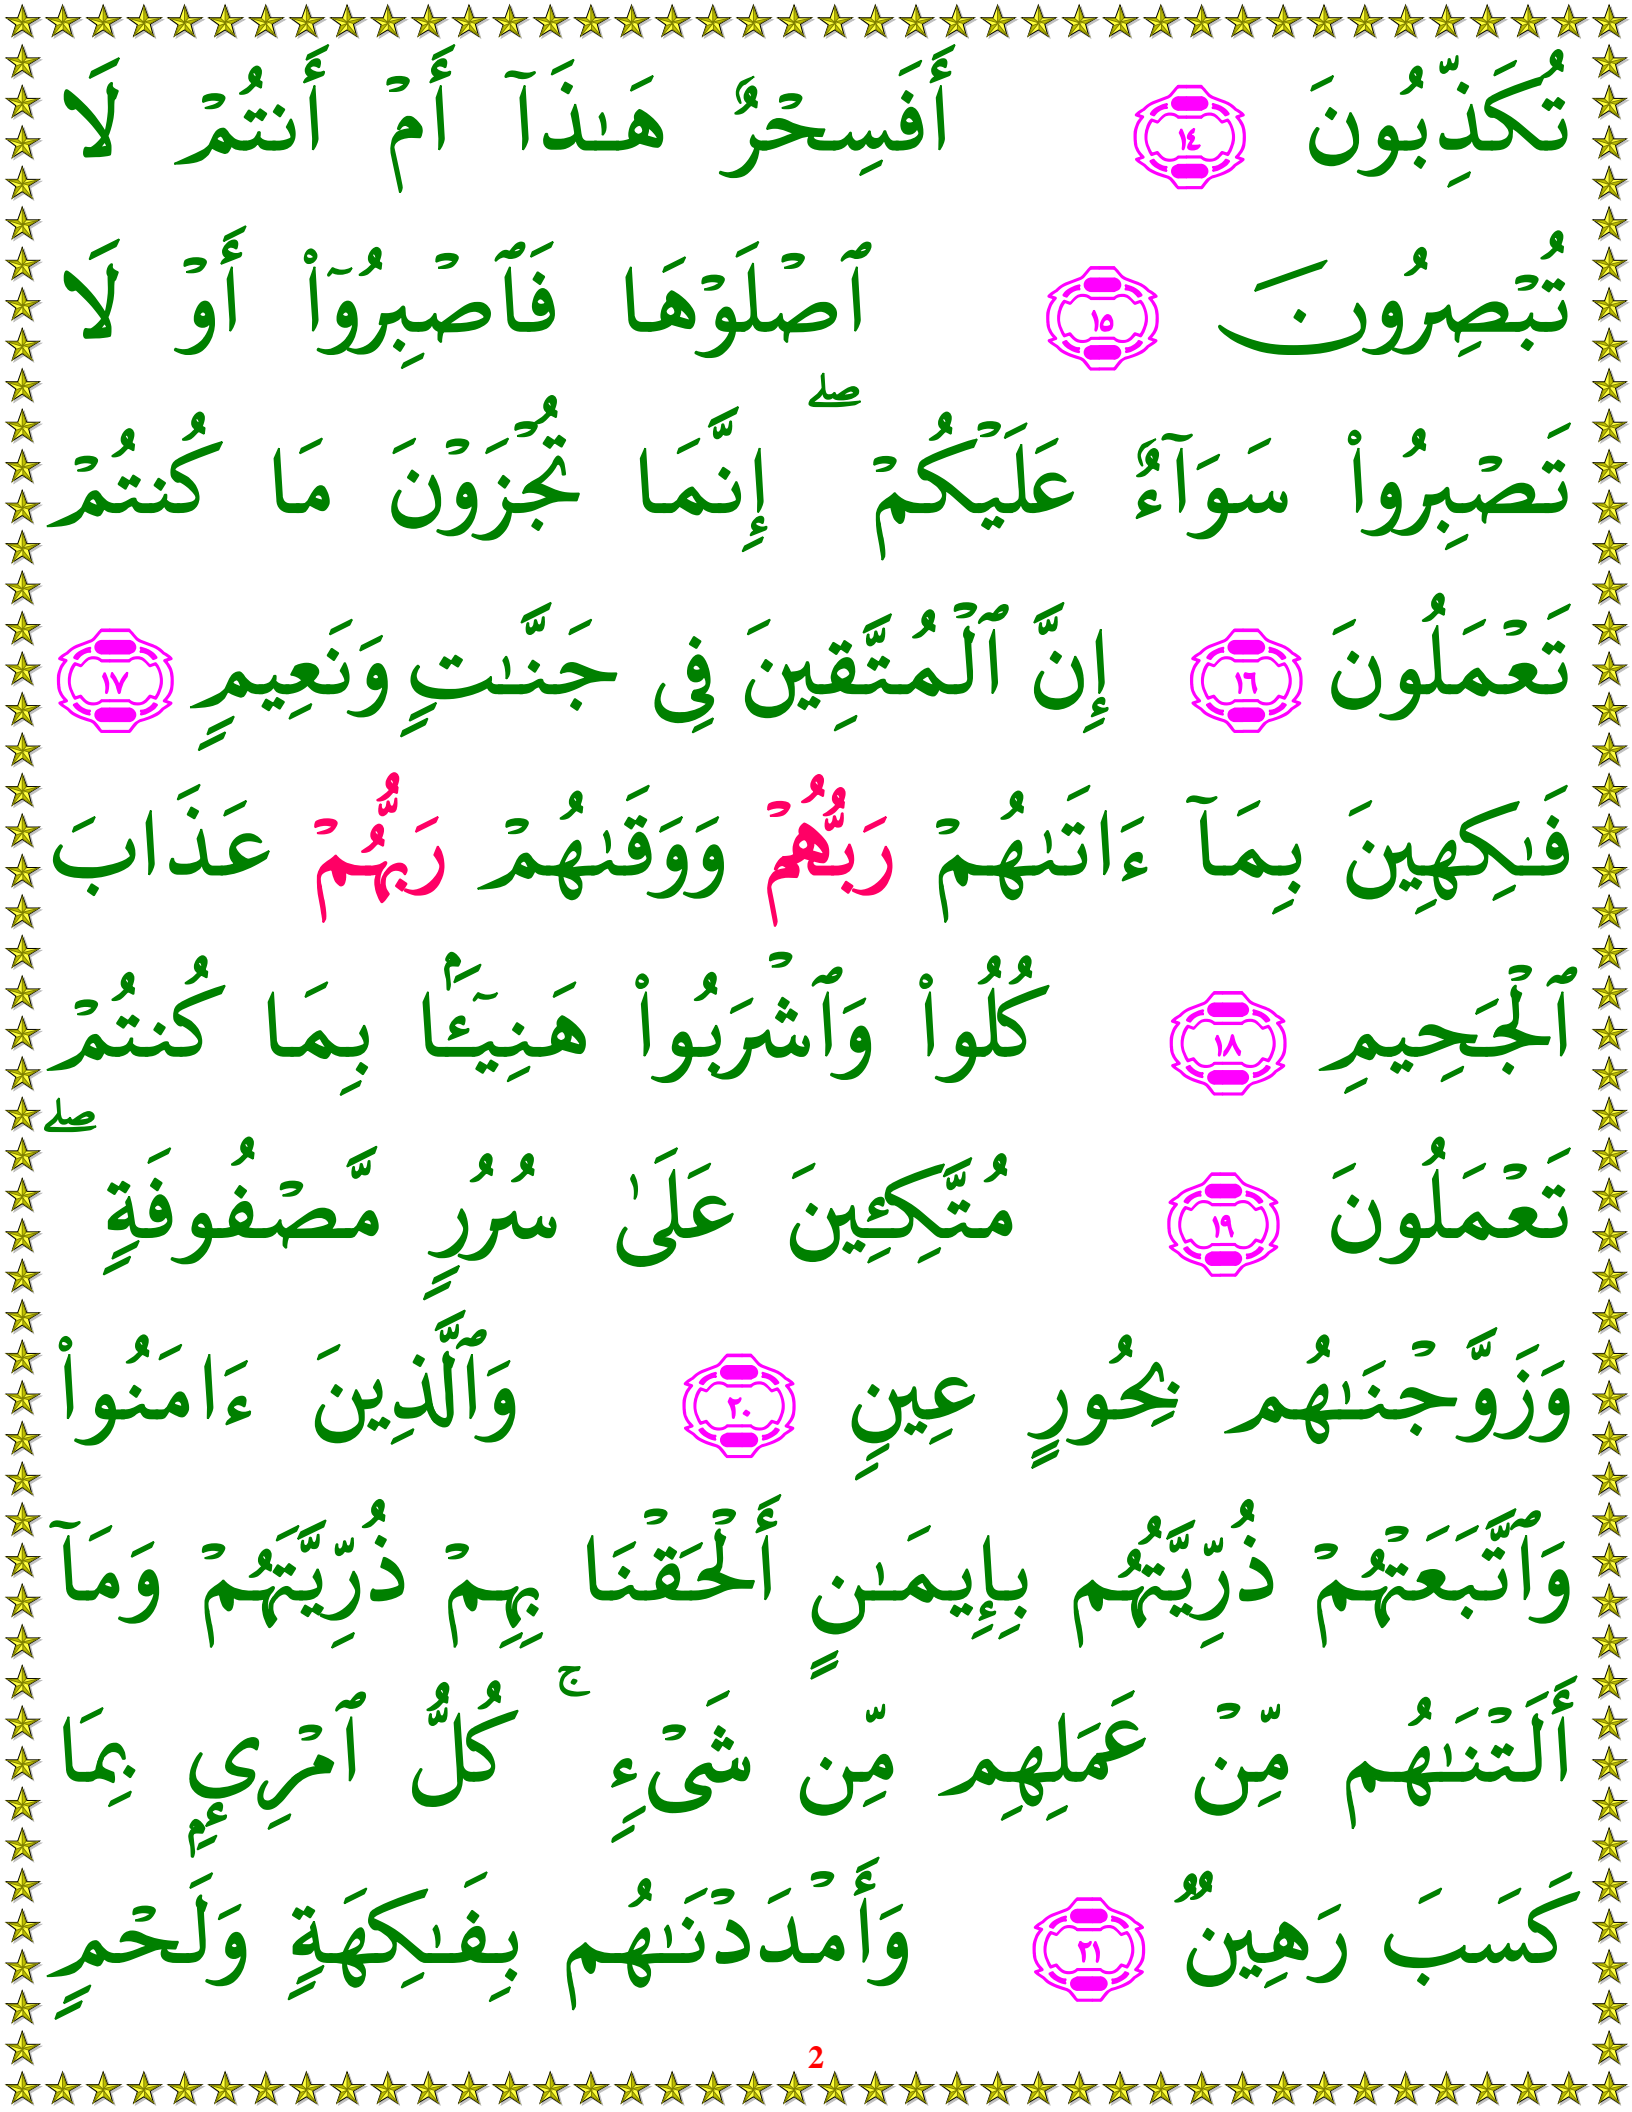 تُكَذِّبُونَ ١٤ أَفَسِحْرٌ هَـٰذَآ أَمْ أَنتُمْ لَا
تُبْصِرُونَ ١٥ ٱصْلَوْهَا فَٱصْبِرُوٓا۟ أَوْ لَا
تَصْبِرُوا۟ سَوَآءٌ عَلَيْكُمْ ۖ إِنَّمَا تُجْزَوْنَ مَا كُنتُمْ
تَعْمَلُونَ ١٦ إِنَّ ٱلْمُتَّقِينَ فِى جَنَّـٰتٍ وَنَعِيمٍ ١٧
فَـٰكِهِينَ بِمَآ ءَاتَىٰهُمْ رَبُّهُمْ وَوَقَىٰهُمْ رَبُّهُمْ عَذَابَ
ٱلْجَحِيمِ ١٨ كُلُوا۟ وَٱشْرَبُوا۟ هَنِيٓـًٔۢا بِمَا كُنتُمْ
تَعْمَلُونَ ١٩ مُتَّكِـِٔينَ عَلَىٰ سُرُرٍ مَّصْفُوفَةٍ ۖ
وَزَوَّجْنَـٰهُم بِحُورٍ عِينٍ ٢٠ وَٱلَّذِينَ ءَامَنُوا۟
وَٱتَّبَعَتْهُمْ ذُرِّيَّتُهُم بِإِيمَـٰنٍ أَلْحَقْنَا بِهِمْ ذُرِّيَّتَهُمْ وَمَآ
أَلَتْنَـٰهُم مِّنْ عَمَلِهِم مِّن شَىْءٍ ۚ كُلُّ ٱمْرِئٍۭ بِمَا
كَسَبَ رَهِينٌ ٢١ وَأَمْدَدْنَـٰهُم بِفَـٰكِهَةٍ وَلَحْمٍ
2